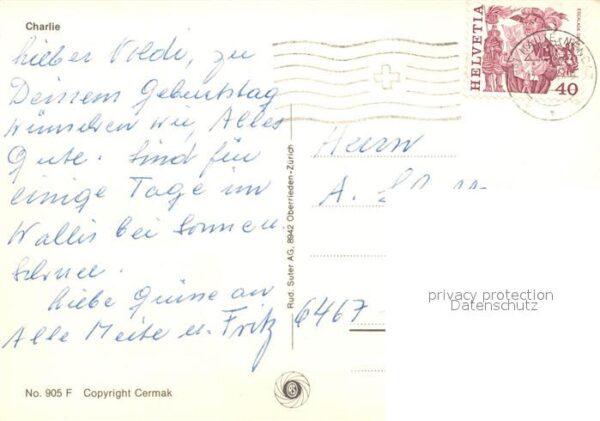 Charlie
Lieber Noldi, zu
Deinem Geburtstag
wünschen wir, Alles
Gute. Sind für
einige Tage im
Wallis bei Sonnen
Schnee.
Liebe Grüsse an
Alle Meite u. Fritz
No. 905 F Copyright Cermak
Rud. Suter AG, 8942 Oberrieden-Zürich
HELVETIA
40
Herrn
A.
6467
privacy protection
Datenschutz